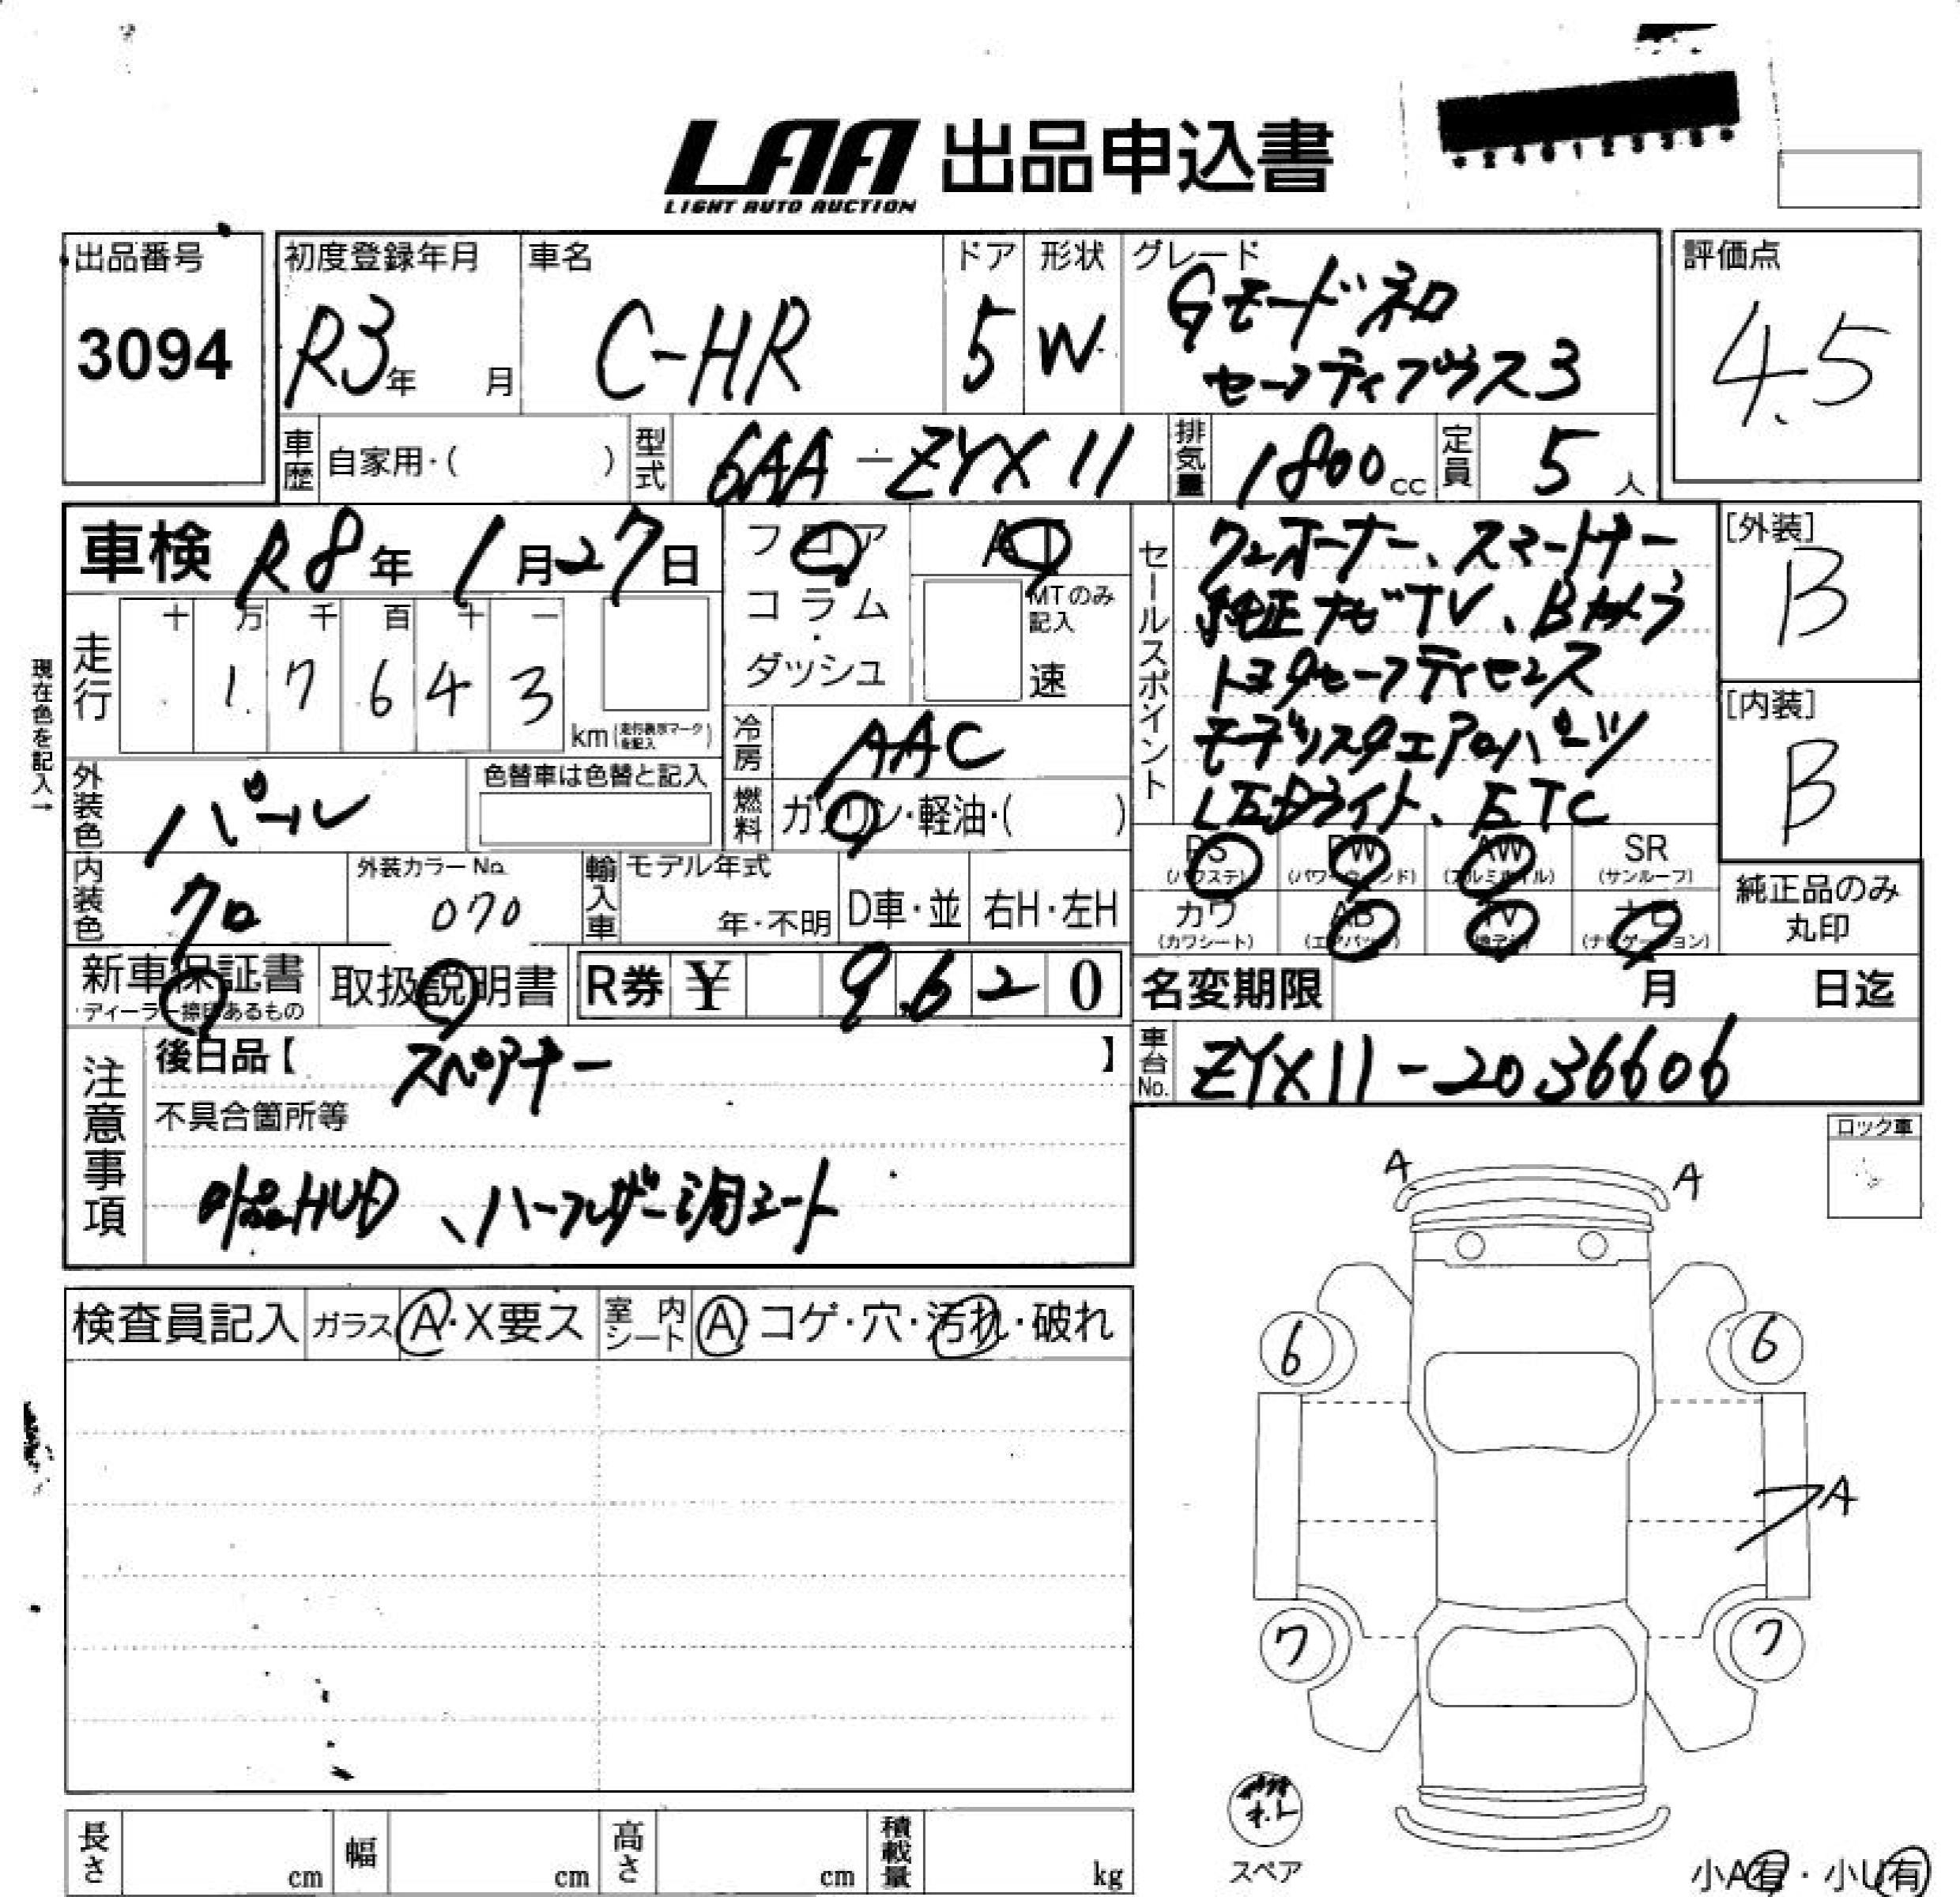 LAA 出品申込書
LIGHT AUTO AUCTION
出品番号
3094
初度登録年月
R3年 月
車名
C-HR
ドア
5
形状
W
グレード
Gモードネロ
セーフティプラス3
評価点
4.5
車歴
自家用・( )
型式
6AA-ZYX11
排気量
1800cc
定員
5人
車検 R8年1月27日
フロア
コラム
・
ダッシュ
AT
MTのみ
記入
速
走行
十 万 千 百 十 一
1 7 6 4 3
km(走行表示マークを記入)
現在色を記入→
冷房
AAC
燃料
ガソリン・軽油・( )
外装色
パール
色替車は色替と記入
内装色
クロ
外装カラーNo.
070
輸入車
モデル年式
年・不明
D車・並
右H・左H
セールスポイント
ワンオーナー、スマートキー
純正ナビTV、Bカメラ
トヨタセーフティセンス
モデリスタエアロパーツ
LEDライト、ETC
[外装]
B
[内装]
B
PS
(パワステ)
PW
(パワーウィンド)
AW
(アルミホイル)
SR
(サンルーフ)
カワ
(カワシート)
AB
(エアバック)
TV
ナビ
(ナビゲーション)
純正品のみ
丸印
新車保証書
ディーラー捺印あるもの
取扱説明書
R券 ¥ 9,620
名変期限 月 日迄
車台No.
ZYX11-2036606
注意事項
後日品【 スペアキー 】
不具合箇所等
HUD、ハーフレザー調シート
ロック車
検査員記入
ガラス
A・X要ス
室内シート
A コゲ・穴・汚れ・破れ
A
A
6
6
A
7
7
スペア
長さ
cm
幅
cm
高さ
cm
積載量
kg
小A有・小U有